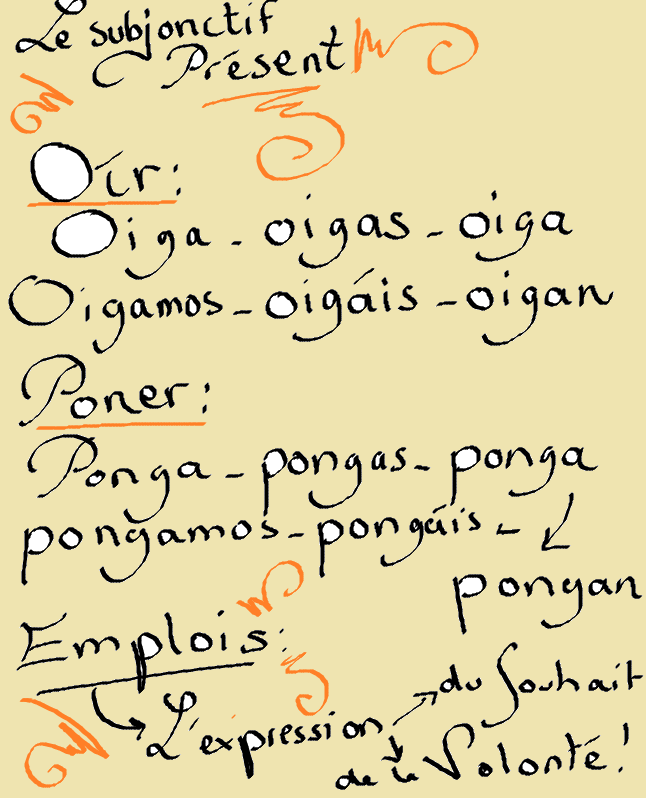 Le subjonctif
Présent
Oír:
Oiga - oigas - oiga
Oigamos - oigáis - oigan
Poner:
Ponga - pongas - ponga
pongamos - pongáis -
pongan
Emplois:
L'expression
du Souhait
de la Volonté!